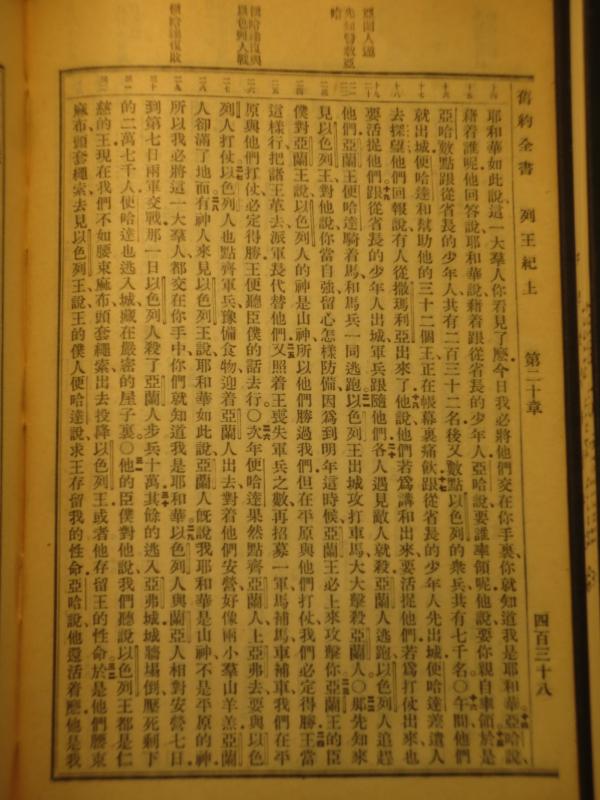 舊約全書 列王紀上 第二十章 四百三十八
亞蘭人逃
以色列人戰
耶和華如此說、這一大羣人你看見了麼、今日我必將他們交在你手裏、你就知道我是耶和華。亞哈說、
藉着誰呢、他回答說、耶和華說、藉着跟從省長的少年人、亞哈說、要誰率領呢、他說、要你親自率領。於是
亞哈數點跟從省長的少年人、共有二百三十二名、後又數點以色列的衆兵、共有七千名。○午間他們
就出城、便哈達和幫助他的三十二個王、正在帳幕裏痛飲。跟從省長的少年人先出城、便哈達差遣人
去探望、他們回報說、有人從撒瑪利亞出來了。他說、他們若爲講和出來、要活捉他們、若爲打仗出來、也
要活捉他們。跟從省長的少年人出城、軍兵跟隨他們。各人遇見敵人就殺、亞蘭人逃跑、以色列人追趕
他們、亞蘭王便哈達騎着馬、和馬兵一同逃跑。以色列王出城攻打車馬、大大擊殺亞蘭人。○那先知來
見以色列王、對他說、你當自強、留心怎樣防備、因爲到明年這時候、亞蘭王必上來攻擊你。亞蘭王的臣
僕對亞蘭王說、以色列人的神是山神、所以他們勝過我們、但在平原與他們打仗、我們必定得勝。王當
這樣行、把諸王革去、派軍長代替他們、又照着王喪失軍兵之數、再招募一軍、馬補馬、車補車、我們在平
原與他們打仗、必定得勝、王便聽臣僕的話去行。○次年便哈達果然點齊亞蘭人上亞弗去、要與以色
列人打仗。以色列人也點齊軍兵、豫備食物、迎着亞蘭人出去、對着他們安營、好像兩小羣山羊羔、亞蘭
人卻滿了地面。有神人來見以色列王說、耶和華如此說、亞蘭人旣說我耶和華是山神、不是平原的神、
所以我必將這一大羣人都交在你手中、你們就知道我是耶和華。以色列人與亞蘭人相對安營七日、
到第七日兩軍交戰、那一日以色列人殺了亞蘭人步兵十萬。其餘的逃入亞弗城、城牆塌倒、壓死剩下
的二萬七千人、便哈達也逃入城、藏在嚴密的屋子裏。○他的臣僕對他說、我們聽說以色列王都是仁
慈的王、現在我們不如腰束麻布、頭套繩索、出去投降以色列王、或者他存留王的性命。於是他們腰束
麻布、頭套繩索、去見以色列王、說、王的僕人便哈達說、求王存留我的性命、亞哈說、他還活着麼、他是我